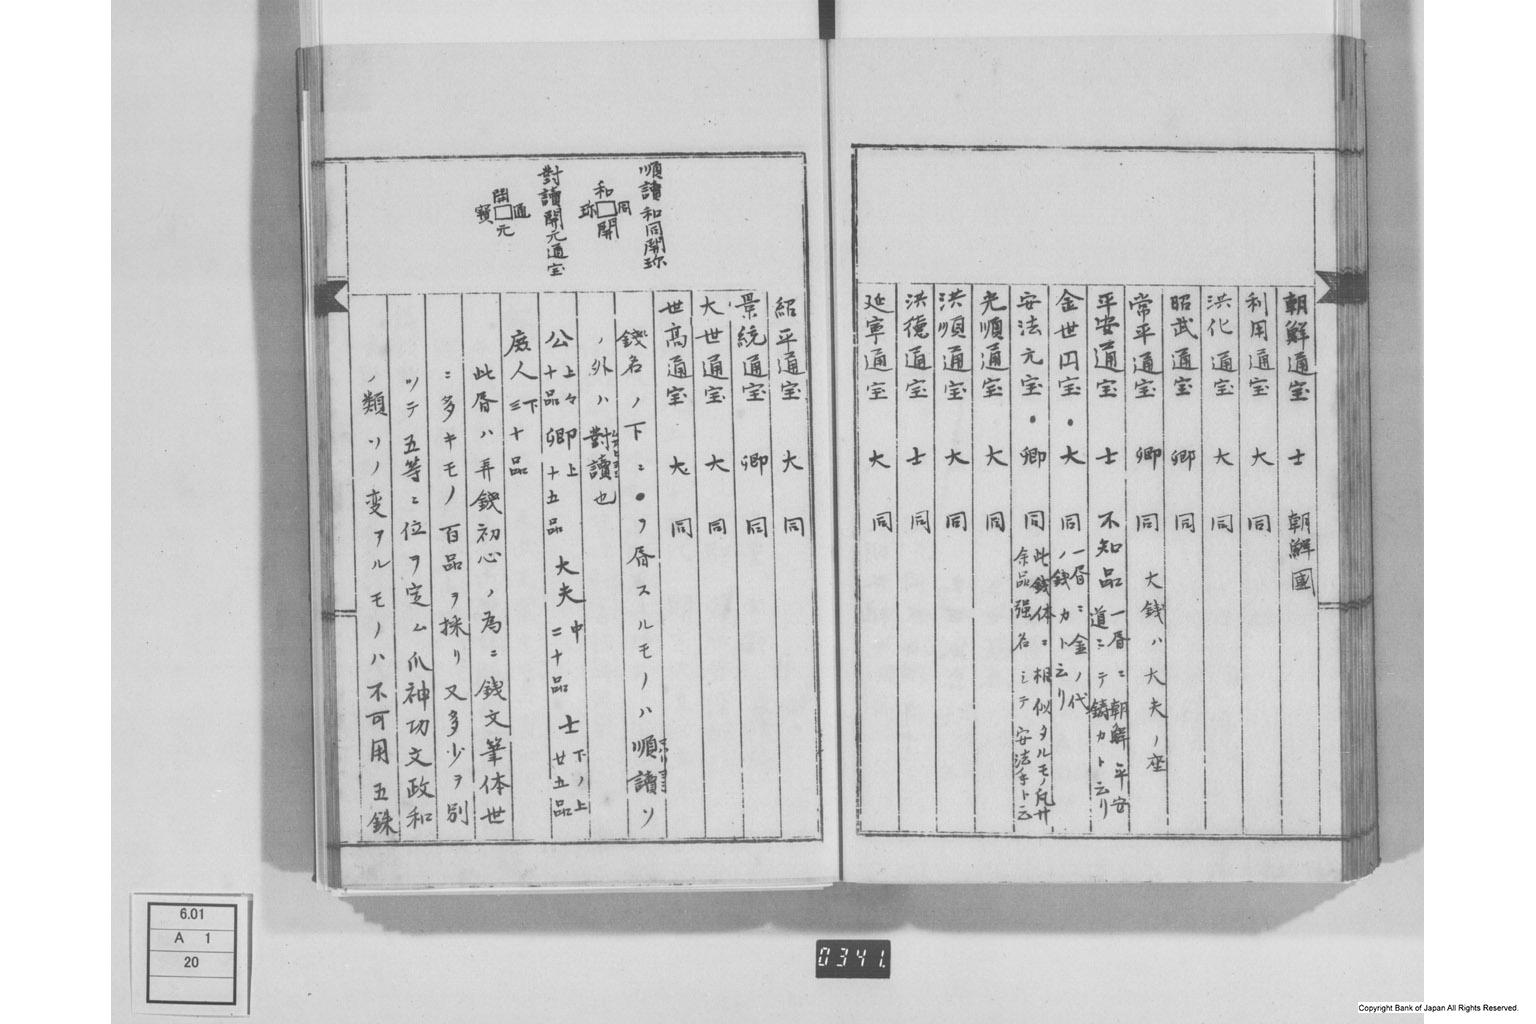 朝鮮通宝 士 朝鮮國
利用通宝 大 同
洪化通宝 大 同
昭武通宝 卿 同
常平通宝 卿 同 大銭ハ大夫ノ座
平安通宝 士 不知品 一昏ニ朝鮮平安
道ニテ鋳カト云リ
金世円宝・大 同 一昏ニ金ノ代
ノ銭カト云リ
安法元宝・卿 同 此銭体ニ相似タルモノ凡廿
余品强名シテ安法手ト云
光順通宝 大 同
洪順通宝 大 同
洪德通宝 士 同
延寧通宝 大 同
紹平通宝 大 同
景統通宝 卿 同
大世通宝 大 同
世高通宝 大 同
順讀和同開珎
和同開珎
對讀開元通宝
開元通寶
錢名ノ下ニ●ヲ昏スルモノハ順讀ソ
ノ外ハ對讀也
公上々十品 卿上十五品 大夫中二十品 士下ノ上廿五品
庶人下三十品
此昏ハ弄錢初心ノ為ニ錢文筆体世
ニ多キモノ百品ヲ採リ又多少ヲ別
ツテ五等ニ位ヲ定ム爪神功文政和
ノ類ソノ変ヲルモノハ不可用五銖
6.01
A 1
20
0341.
Copyright Bank of Japan All Rights Reserved.